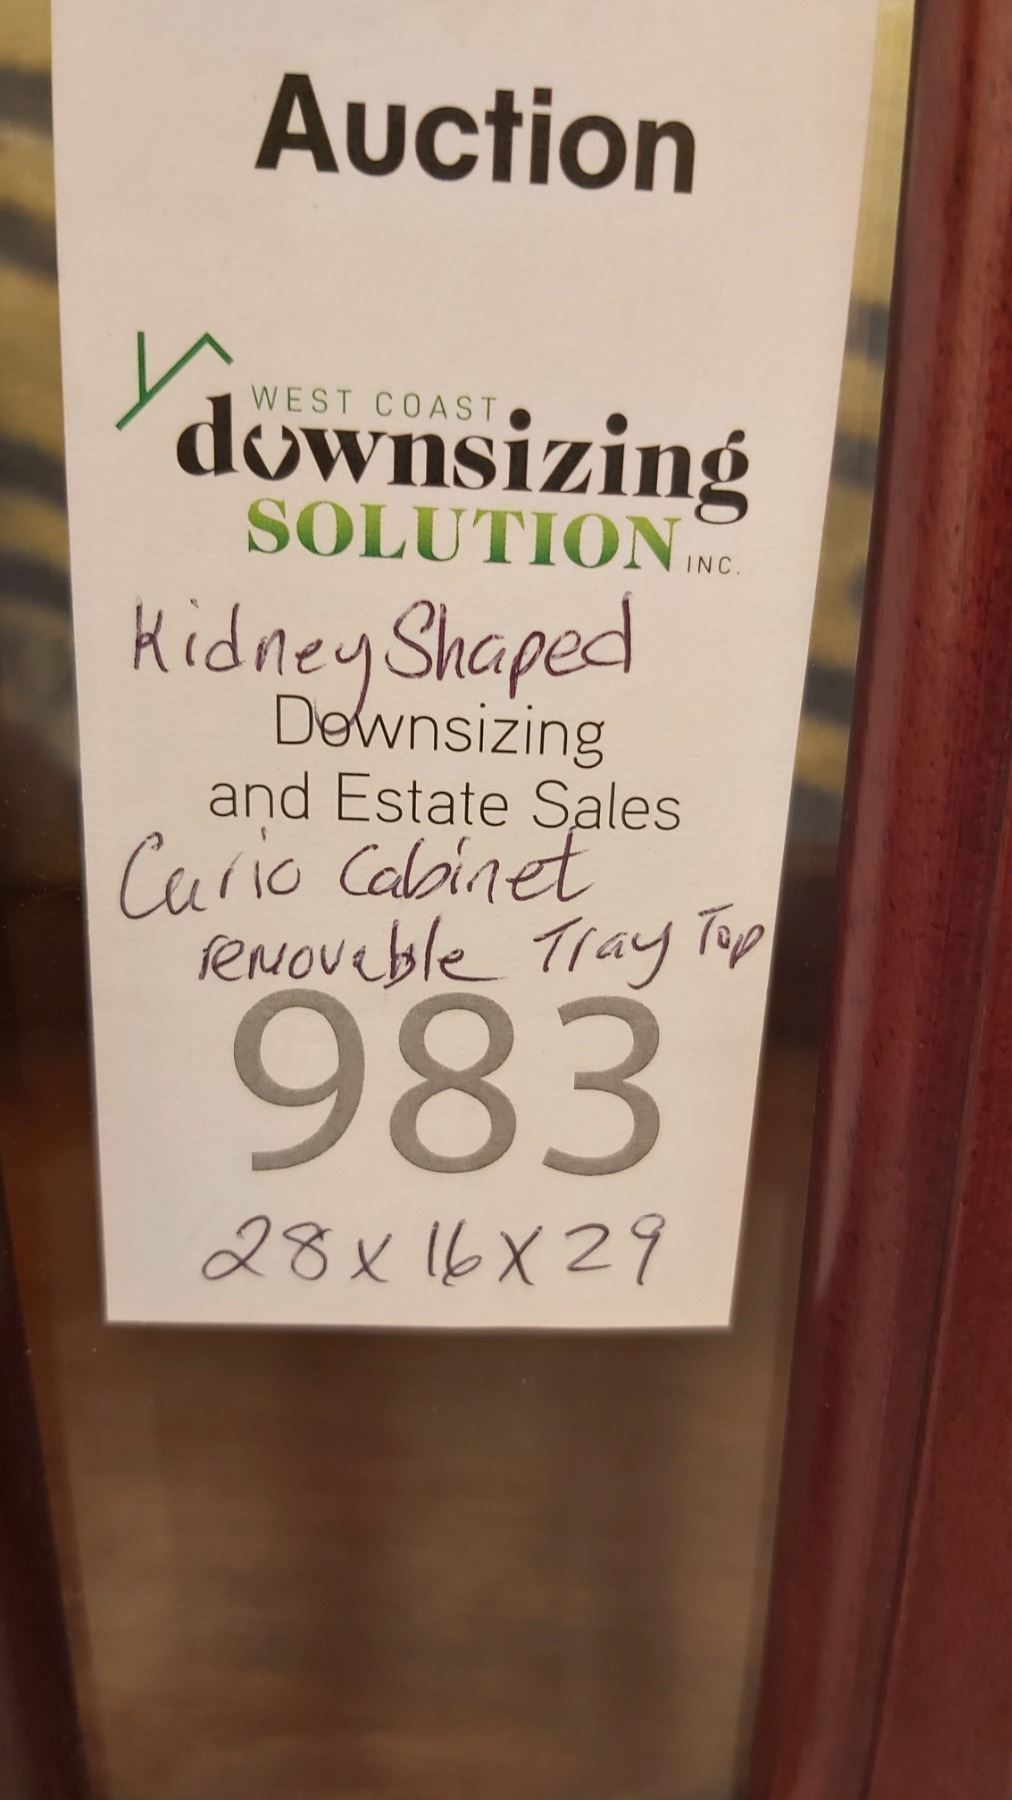 Auction
WEST COAST
downsizing
SOLUTION INC.
Kidney Shaped
Downsizing
and Estate Sales
Curio Cabinet
removable Tray Top
983
28 x 16 x 29